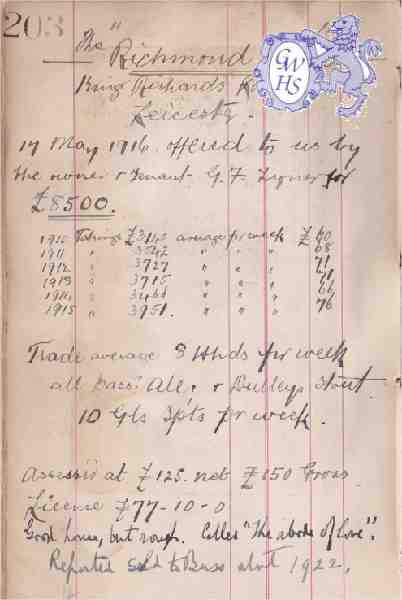 203
The "Richmond
King Richards
Leicester.
17 May 1916 offered to us by
the owner & Tenant G. F. for
£8500.
1910 Takings £3145 average per week £60
1911 " 3542 " " " 68
1912 " 3727 " " " 71
1913 " 3715 " " " 71
1914 " 3460 " " " 66
1915 " 3951. " " " 76
Trade average 3 Hhds per week
all Bass' Ale, & Bulleys Stout.
10 Gls Spts per week.
Assess'd at £125. net £150 Gross
License £77-10-0
Good house, but rough. Called "The abode of love".
Reported sold to Bass abot 1922,
GW
HS